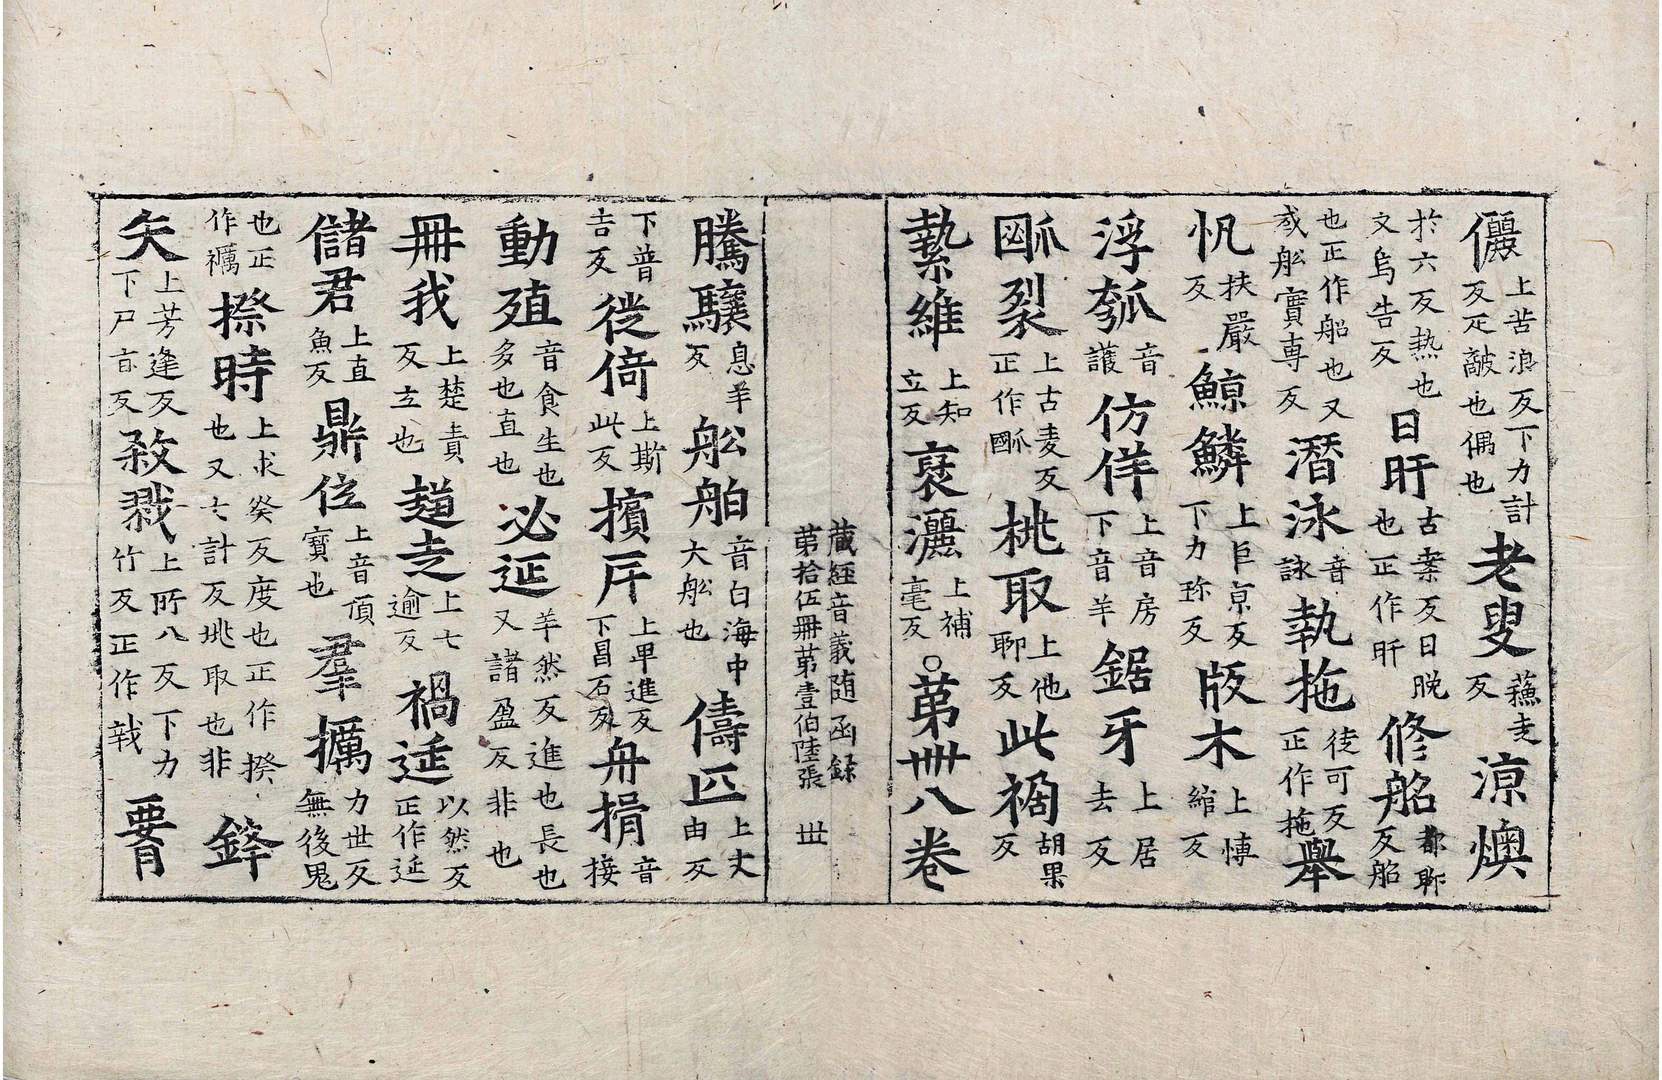 儷上苦浪反下力計反疋敵也偶也老叟蘓走反涼燠
於六反熱也又烏告反日旰古案反日晚也正作旰修船都聊反船
也正作船也又或舩寶専反潛泳音詠執拖徒可反正作拖舉
帆扶嚴反鯨鱗上巨京反下力珎反版木上愽綰反
浮瓠音護仿佯上音房下音羊鋸牙上居去反
㽿裂上古麦反正作㽿桃取上他聊反此禍胡果反
縶維上知立反裒灑上補毫反○苐卌八卷
藏經音義随函録
苐拾伍冊苐壹伯陸張 丗
騰驤息羊反舩舶音白海中大舩也儔匹上丈由反
下普吉反徙倚上斯此反擯斥上卑進反下昌石反舟揖音接
動殖音食生也多也直也必延羊然反進也長也又諸盈反非也
冊我上楚責反立也趙走上七逾反禍延以然反正作延
儲君上直魚反鼎位上音頂寶也羣擥力世反無後鬼
也正作禲揆時上求癸反度也正作揆也又七計反挑取也非鋒
矢上芳逢反下尸旨反殺戮上所八反下力竹反正作戮要胃